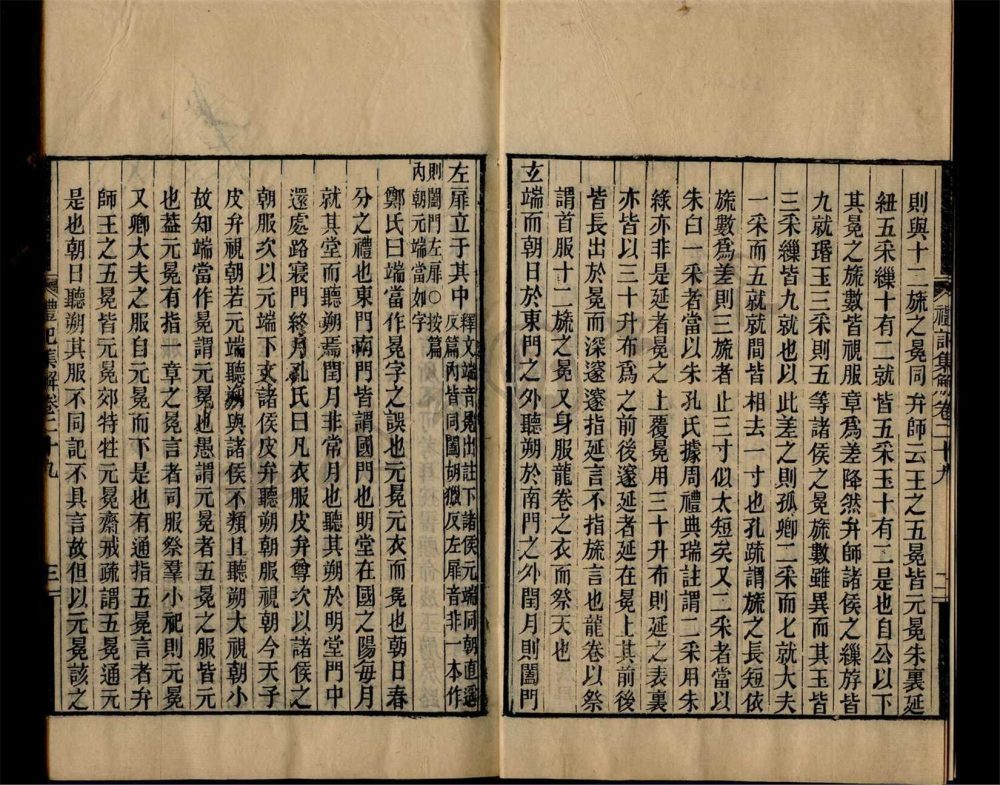 則與十二旒之冕同弁師云王之五冕皆元冕朱裏延
紐五采繅十有二就皆五采玉十有二是也自公以下
其冕之旒數皆視服章爲差降然弁師諸侯之繅斿皆
九就瑉玉三采則五等諸侯之冕旒數雖異而其玉皆
三采繅皆九就也以此差之則孤卿二采而七就大夫
一采而五就就間皆相去一寸也孔疏謂旒之長短依
旒數爲差則三旒者止三寸似太短矣又二采者當以
朱白一采者當以朱孔氏據周禮典瑞註謂二采用朱
綠亦非是延者冕之上覆冕用三十升布則延之表裏
亦皆以三十升布爲之前後邃延者延在冕上其前後
皆長出於冕而深邃邃指延言不指旒言也龍卷以祭
謂首服十二旒之冕又身服龍卷之衣而祭天也
玄端而朝日於東門之外聽朔於南門之外閏月則闔門
左扉立于其中
釋文端音冕出註下諸侯元端同朝直遙
反篇內皆同闔胡獵反左扉音非一本作
則闔門左扉○按篇
內朝元端當如字
鄭氏曰端當作冕字之誤也元冕元衣而冕也朝日春
分之禮也東門南門皆謂國門也明堂在國之陽每月
就其堂而聽朔焉閏月非常月也聽其朔於明堂門中
還處路寢門終月孔氏曰凡衣服皮弁尊次以諸侯之
朝服次以元端下文諸侯皮弁聽朔朝服視朝今天子
皮弁視朝若元端聽朔與諸侯不類且聽朔大視朝小
故知端當作冕謂元冕也愚謂元冕者五冕之服皆元
也葢元冕有指一章之冕言者司服祭羣小祀則元冕
又卿大夫之服自元冕而下是也有通指五冕言者弁
師王之五冕皆元冕郊特牲元冕齋戒疏謂五冕通元
是也朝日聽朔其服不同記不具言故但以元冕該之
禮記集解卷二十九
二
禮記集解卷二十九
三